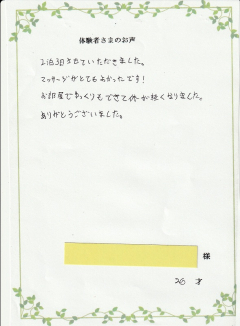 体験者さまのお声
2泊3日させていただきました。
マッサージがとてもよかったです!
お部屋でゆっくりもできて体が軽くなりました。
ありがとうございました。
様
26 才